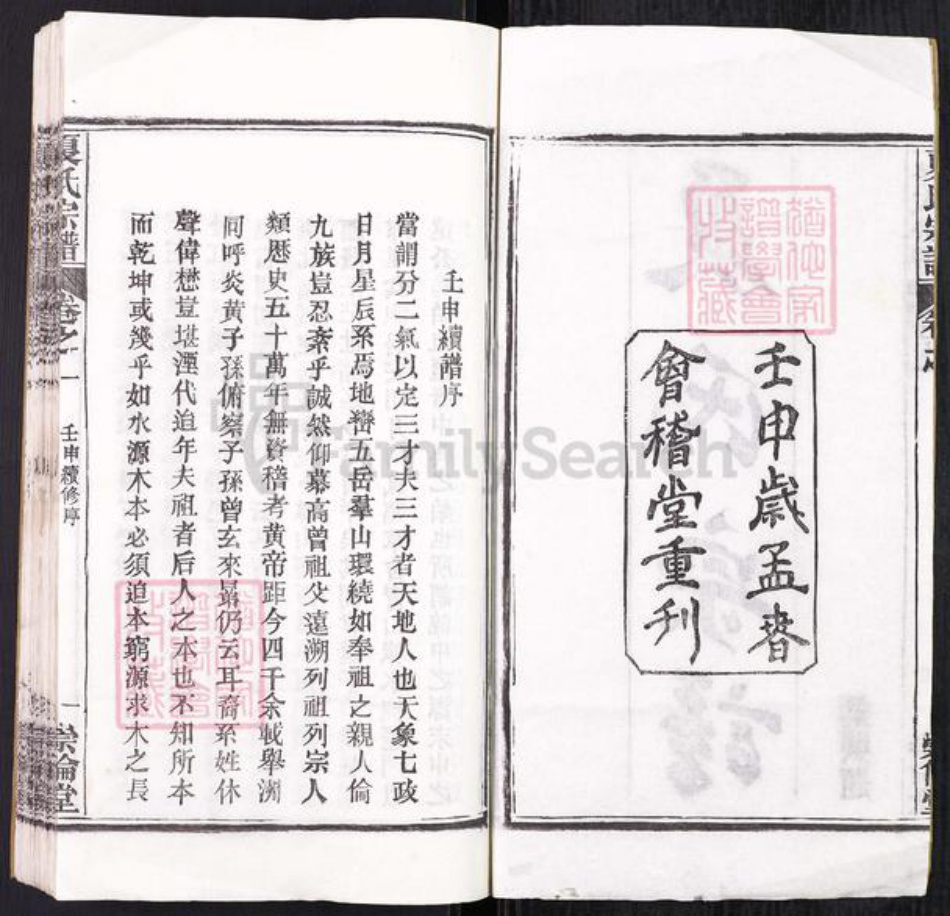 壬申歲孟春
會稽堂重刊
猶他家
譜學會
收藏
壬申續譜序
當謂分二氣以定三才夫三才者天地人也天象七政
日月星辰系焉地濟五岳羣山環繞如奉祖之親人倫
九族豈忍紊乎誠然仰慕高曾祖父遠溯列祖列宗人
類歷史五十萬年無資稽考黄帝距今四千余載舉溯
同呼炎黄子孫俯察子孫曾玄來晜仍云耳裔系姓休
聲偉懋豈堪湮代追年夫祖者后人之本也不知所本
而乾坤或幾乎如水源木本必須追本窮源求木之長
氏宗譜
卷之一
壬申續修序
一
崇倫堂
FamilySearch